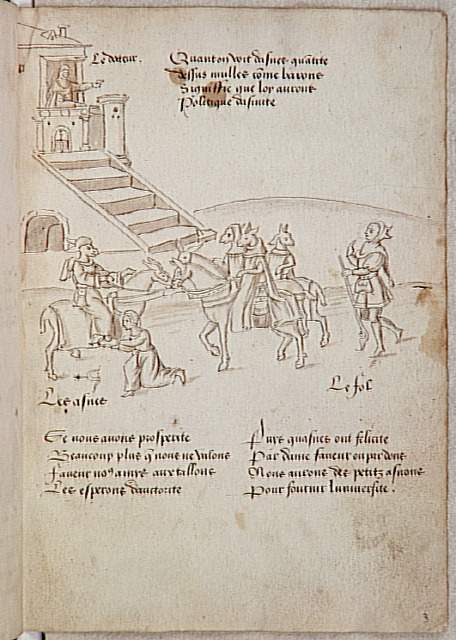 Le docteur.
Quant on voit d'asnes quantite
Dessus mulles come barons
Signiffie que lor aurons
Politique dasinite
Les asnes
Le fol
Se nous auons prosperite
Beaucoup plus q nous ne valons
Faueur no9 a mys aux tallons
Les esperons dauctorite
Puys quasnes ont felicite
Par dame faueur en per dons
Nous aurons des petitz asnons
Pour fournir luniuersite.
3